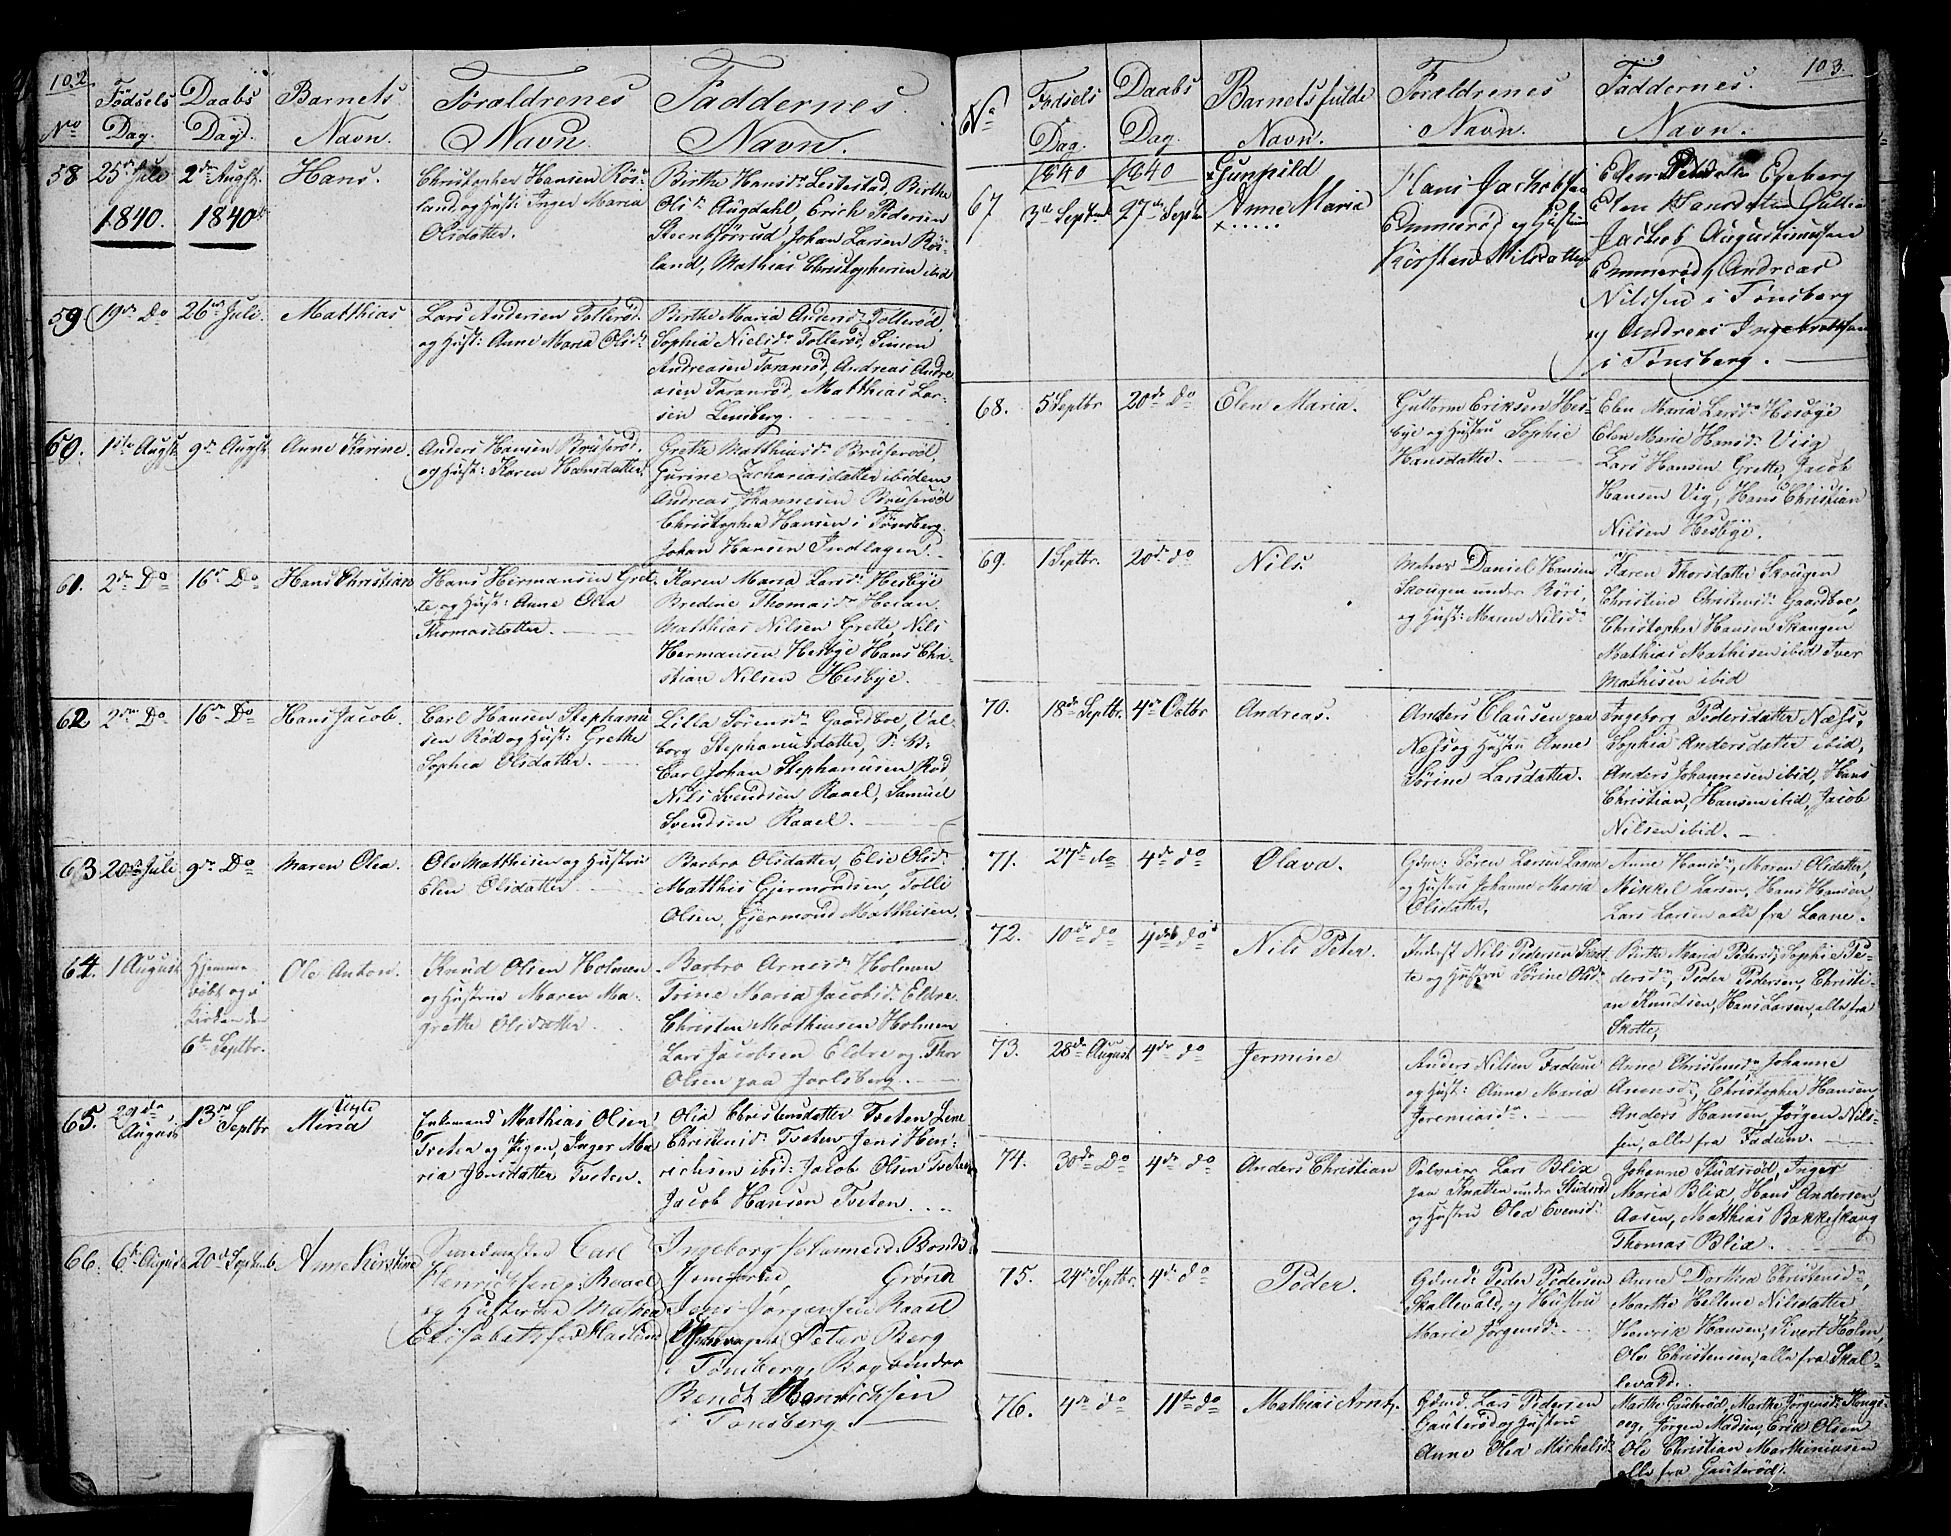 102
No
Fødsels Dag.
Daabs Dag.
Barnets Navn.
Forældrenes Navn.
Faddernes Navn.
58
25de Juli 1840.
2den Augst. 1840
Hans.
Christopher Hansen Rös-
land og Hust: Inger Maria
Olsdatter.
Birthe Hansdr Leistestad, Birthe
Olsdr Augdahl, Erich Pedersen
Steenbjörrud, Johan Larsen Rös-
land, Mathias Christophersen ibid
59
19de Do
26de Juli.
Matthias
Lars Andersen Tollerød
og Hust: Anne Maria Olsdr
Birthe Maria Andersdr Tollerød,
Sophia Nielsdr Tollerød, Simon
Andreasen Faranrød, Andreas Andre-
asen Faranrød, Matthias Lar-
sen Lensberg.
60.
1ste Augst.
9de Augst.
Anne Karine.
Anders Hansen Bruserød.
og Hust: Karen Hansdatter.
Grethe Matthiasdr Bruserød.
Gurine Zachariasdatter ibidem
Andreas Johannesen Bruserød
Christopher Hansen i Tønsberg.
Johan Hansen Indlagen.
61.
2den Do
16de Do
Hans Christian
Hans Hermansen Gret-
te, og Hust: Anne Olea
Thomasdatter.
Karen Maria Larsdr Hesbye
Bredine Thomasdr Heian.
Matthias Nilsen Grette, Nils
Hermansen Hesbye Hans Chri-
stian Nilsen Hesbye.
62
2den Do
16de Do
Hans Jacob.
Carl Hansen Stephanu
sen Röd og Hust: Grethe
Sophia Olsdatter.
Lilla Sørensdr Gaardboe, Val-
borg Stephanusdatter,
Carl Johan Stephanusen Rød,
Nils Svendsen Raael, Samuel
Svendsen Raael.
63
20de Juli
9de Do
Maren Olea
Ole Matthisen og Hustru
Elen Olsdatter.
Barbro Olsdatter, Elsie Olsdr
Matthis Gjermondsen, Tolli
Olsen, Gjermond Matthisen.
64.
1 August
Hjemme-
døbt og i
Kirken den
6te Septbr.
Ole Anton.
Knud Olsen Holmen
og Hustrue Maren Ma-
grethe Olsdatter.
Barbro Arnesdr Holmen
Trine Maria Jacobsdr Eldre
Christen Mathiasen Holmen
Lars Jacobsen Eldre og Thor
Olsen paa Jarlsberg.
65.
29de August
13de Septbr
Uægte
Miria
Enkemand Mathias Olsen
Tveten og Pigen, Inger Ma-
ria Jensdatter Tveten.
Olia Christensdatter Tveten Lene
Christensdr Tveten, Jens Hen-
richsen ibid: Jacob Olsen Tveten
Jacob Hansen Tveten.
66.
6te August
20de Septemb.
Anne Kirstine
Carl
Henrichsen, Raael
og Hustrue Mathea
Elisabeth
Ingeborg Johannesd. Bonds
Jomfrue, Grönd
Jens Jørgensen Raael
Peter Berg
i Tønsberg, Bogbinder
Bendt Henrichsen
i Tønsberg.
103.
No
Fødsels Dag.
Daabs Dag.
Barnets fulde Navn.
Forældrenes Navn.
Faddernes Navn.
1840
1840
67
3de Septembr
27de Septb
Gunhild
Anne Maria
Hans Jachobsen
Emmerød og Hustru
Kirsten Nilsdatter
Elen Pedersdatter Egeberg
Elen Hansdatter
Jachob Augustinusen
Emmerød, Andreas
Nilssen i Tønsberg
og Andreas Ingebretsen
i Tønsberg.
68.
5 Septbr
20de Do
Elen Maria.
Guttorm Eriksen Hes-
bye og Hustru Sophie
Hansdatter.
Elen Maria Larsdr Hesbye
Elen Marie Hansdr Viig
Lars Hansen Grette, Jacob
Hansen Vig, Hans Christian
Nilsen Hesbye.
69.
1 Septbr.
20de do
Nils
Matros Daniel Hansen
Skougen under Röri,
og Hust: Maren Nilsdr
Karen Thorsdatter Skougen
Christine Christensdr Gaardboe,
Christopher Hansen Skaugen
Mathias Mathisen ibid Iver
Mathisen ibid
70.
18de Septbr.
4de Octbr
Andreas.
Anders Clausen paa
Næss og Hustru Anne
Sörine Larsdatter.
Ingeborg Pedersdatter Næss,
Sophia Andersdatter ibid,
Anders Johannesen ibid, Hans
Christian Hansen ibid, Jacob
Nilsen ibid.
71.
27de do
4de do
Olava.
Gdm: Sören Larsen Laane
og Hustru Johanne Maria
Olsdatter,
Anne Hansdr, Maren Olsdatter,
Mikkel Larsen, Hans Hansen
Lars Larsen alle fra Laane.
72.
10de do
4de do
Nils Peter.
Inderst Nils Pedersen Skot-
te og Hustru Sörine Olsdr
Birthe Maria Pedersdr, Sophie Pe-
dersdr, Peder Pedersen, Christi-
an Knudsen, Hans Larsen, alle fra
Skotte,
73.
28de August
4de do
Jermine
Anders Nilsen Fadum
og Hust: Anne Maria
Jeremiasdr
Anne Christensdr Johanne
Arnesdr, Christopher Hansen,
Anders Hansen, Jørgen Nils-
sen, alle fra Fadum.
74.
30de Do
4de do
Anders Christian
Selveier Lars Blix
paa Knatten under Stüdsrød
og Hustru Olea Evensdr
Johanne Stüdsrød, Inger
Maria Blix, Hans Andersen
Aasen, Matthias Bakkeskaug
Thomas Blix.
75.
24de Septbr.
4de do
Peder.
Gdmd: Peder Pedersen
Skallevald, og Hustru
Marie Jørgensdr
Anne Dorthea Christensdr
Marthe Hellene Nilsdatter,
Henrik Hansen, Sivert Holm,
Ole Christensen, alle fra Skal-
levald.
76.
4de do
11te do
Mathias Arnt.
Gdmd. Lars Pedersen
Gauterød og Hustru
Anne Olea Mickelsdr
Marthe Gauterød, Marthe Jørgensdr Hougs-
oeg, Jørgen Madsen, Erik Olsen
Ole Christian Marthiniusen
alle fra Gauterød.